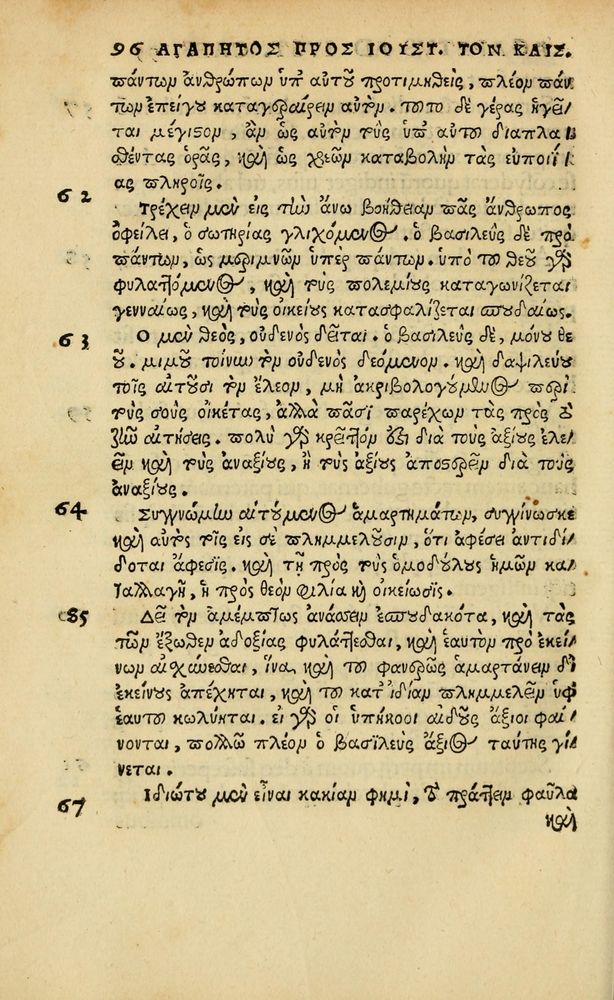 96 ΑΓΑΠΗΤΟΣ ΠΡΟΣ ΙΟΥΣΤ. ΤΟΝ ΚΑΙΣ.
πάντων ἀνθρώπων ὑπ' αὐτοῦ προτιμηθεὶς, πλέον πάν
των ἐπείγου καταγεραίρειν αὐτόν. τοῦτο δὲ γέρας ἡγεῖ/
ται μέγιστον, ἂν ὡς αὐτὸν τοὺς ὑπ' αὐτοῦ διαπλα
σθέντας ὁρᾷς, καὶ ὡς χρεῶν καταβολὴν τὰς εὐποιΐ/
ας πληροῖς.
62
Τρέχειν μὲν εἰς τὴν ἄνω βοήθειαν πᾶς ἄνθρωπος
ὀφείλει, ὁ σωτηρίας γλιχόμενος. ὁ βασιλεὺς δὲ πρὸ
πάντων, ὡς μεριμνῶν ὑπὲρ πάντων. ὑπὸ τοῦ θεοῦ γὰρ
φυλαττόμενος, καὶ τοὺς πολεμίους καταγωνίζεται
γενναίως, καὶ τοὺς οἰκείους κατασφαλίζεται σπουδαίως.
63
Ὁ μὲν θεὸς, οὐδενὸς δεῖται. ὁ βασιλεὺς δὲ, μόνου θε
οῦ. μιμοῦ τοίνυν τὸν οὐδενὸς δεόμενον. καὶ δαψιλεύου
τοῖς αἰτοῦσι τὸν ἔλεον, μὴ ἀκριβολογούμενος περὶ
τοὺς σοὺς οἰκέτας, ἀλλὰ πᾶσι παρέχων τὰς πρὸς τὸ
ζῆν αἰτήσεις. πολὺ γὰρ κρεῖττόν ἐστι διὰ τοὺς ἀξίους ἐλε/
εῖν καὶ τοὺς ἀναξίους, ἢ τοὺς ἀξίους ἀποστερεῖν διὰ τοὺς
ἀναξίους.
64
Συγγνώμην αἰτούμενος ἁμαρτημάτων, συγγίνωσκε
καὶ αὐτὸς τοῖς εἰς σὲ πλημμελοῦσιν, ὅτι ἀφέσει ἀντιδί/
δοται ἄφεσις. καὶ τῇ πρὸς τοὺς ὁμοδούλους ἡμῶν κα/
ταλλαγῇ, ἡ πρὸς θεὸν φιλία καὶ οἰκείωσις.
85
Δεῖ τὸν ἀμέμπτως ἀνάσσειν ἐσπουδακότα, καὶ τὰς
τῶν ἔξωθεν ἀδοξίας φυλάττεσθαι, καὶ ἑαυτὸν πρὸ ἐκεί/
νων αἰσχύνεσθαι, ἵνα καὶ τοῦ φανερῶς ἁμαρτάνειν δι'
ἐκείνους ἀπέχηται, καὶ τοῦ κατ' ἰδίαν πλημμελεῖν ὑφ'
ἑαυτοῦ κωλύηται. εἰ γὰρ οἱ ὑπήκοοι αἰδοῦς ἄξιοι φαί/
νονται, πολλῷ πλέον ὁ βασιλεὺς ἄξιος ταύτης γί/
νεται.
67
Ἰδιώτου μὲν εἶναι κακίαν φημὶ, τὸ πράττειν φαῦλα
καὶ